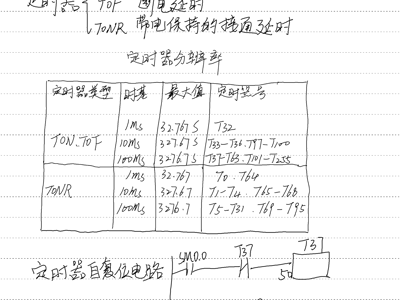 定时器 TOF 断电延时
TONR 带电保持的接通延时
定时器分辨率
定时器类型 时基 最大值 定时器号
TON.TOF 1ms 32.767S T32
10ms 327.67S T33-T36.T97-T100
100ms 3276.7S T37-T63.T101-T255
TONR 1ms 32.767 T0.T64
10ms 327.67 T1-T4.T65-T68
100ms 3276.7 T5-T31.T69-T95
定时器自复位电路 SM0.0 T37 T37
50